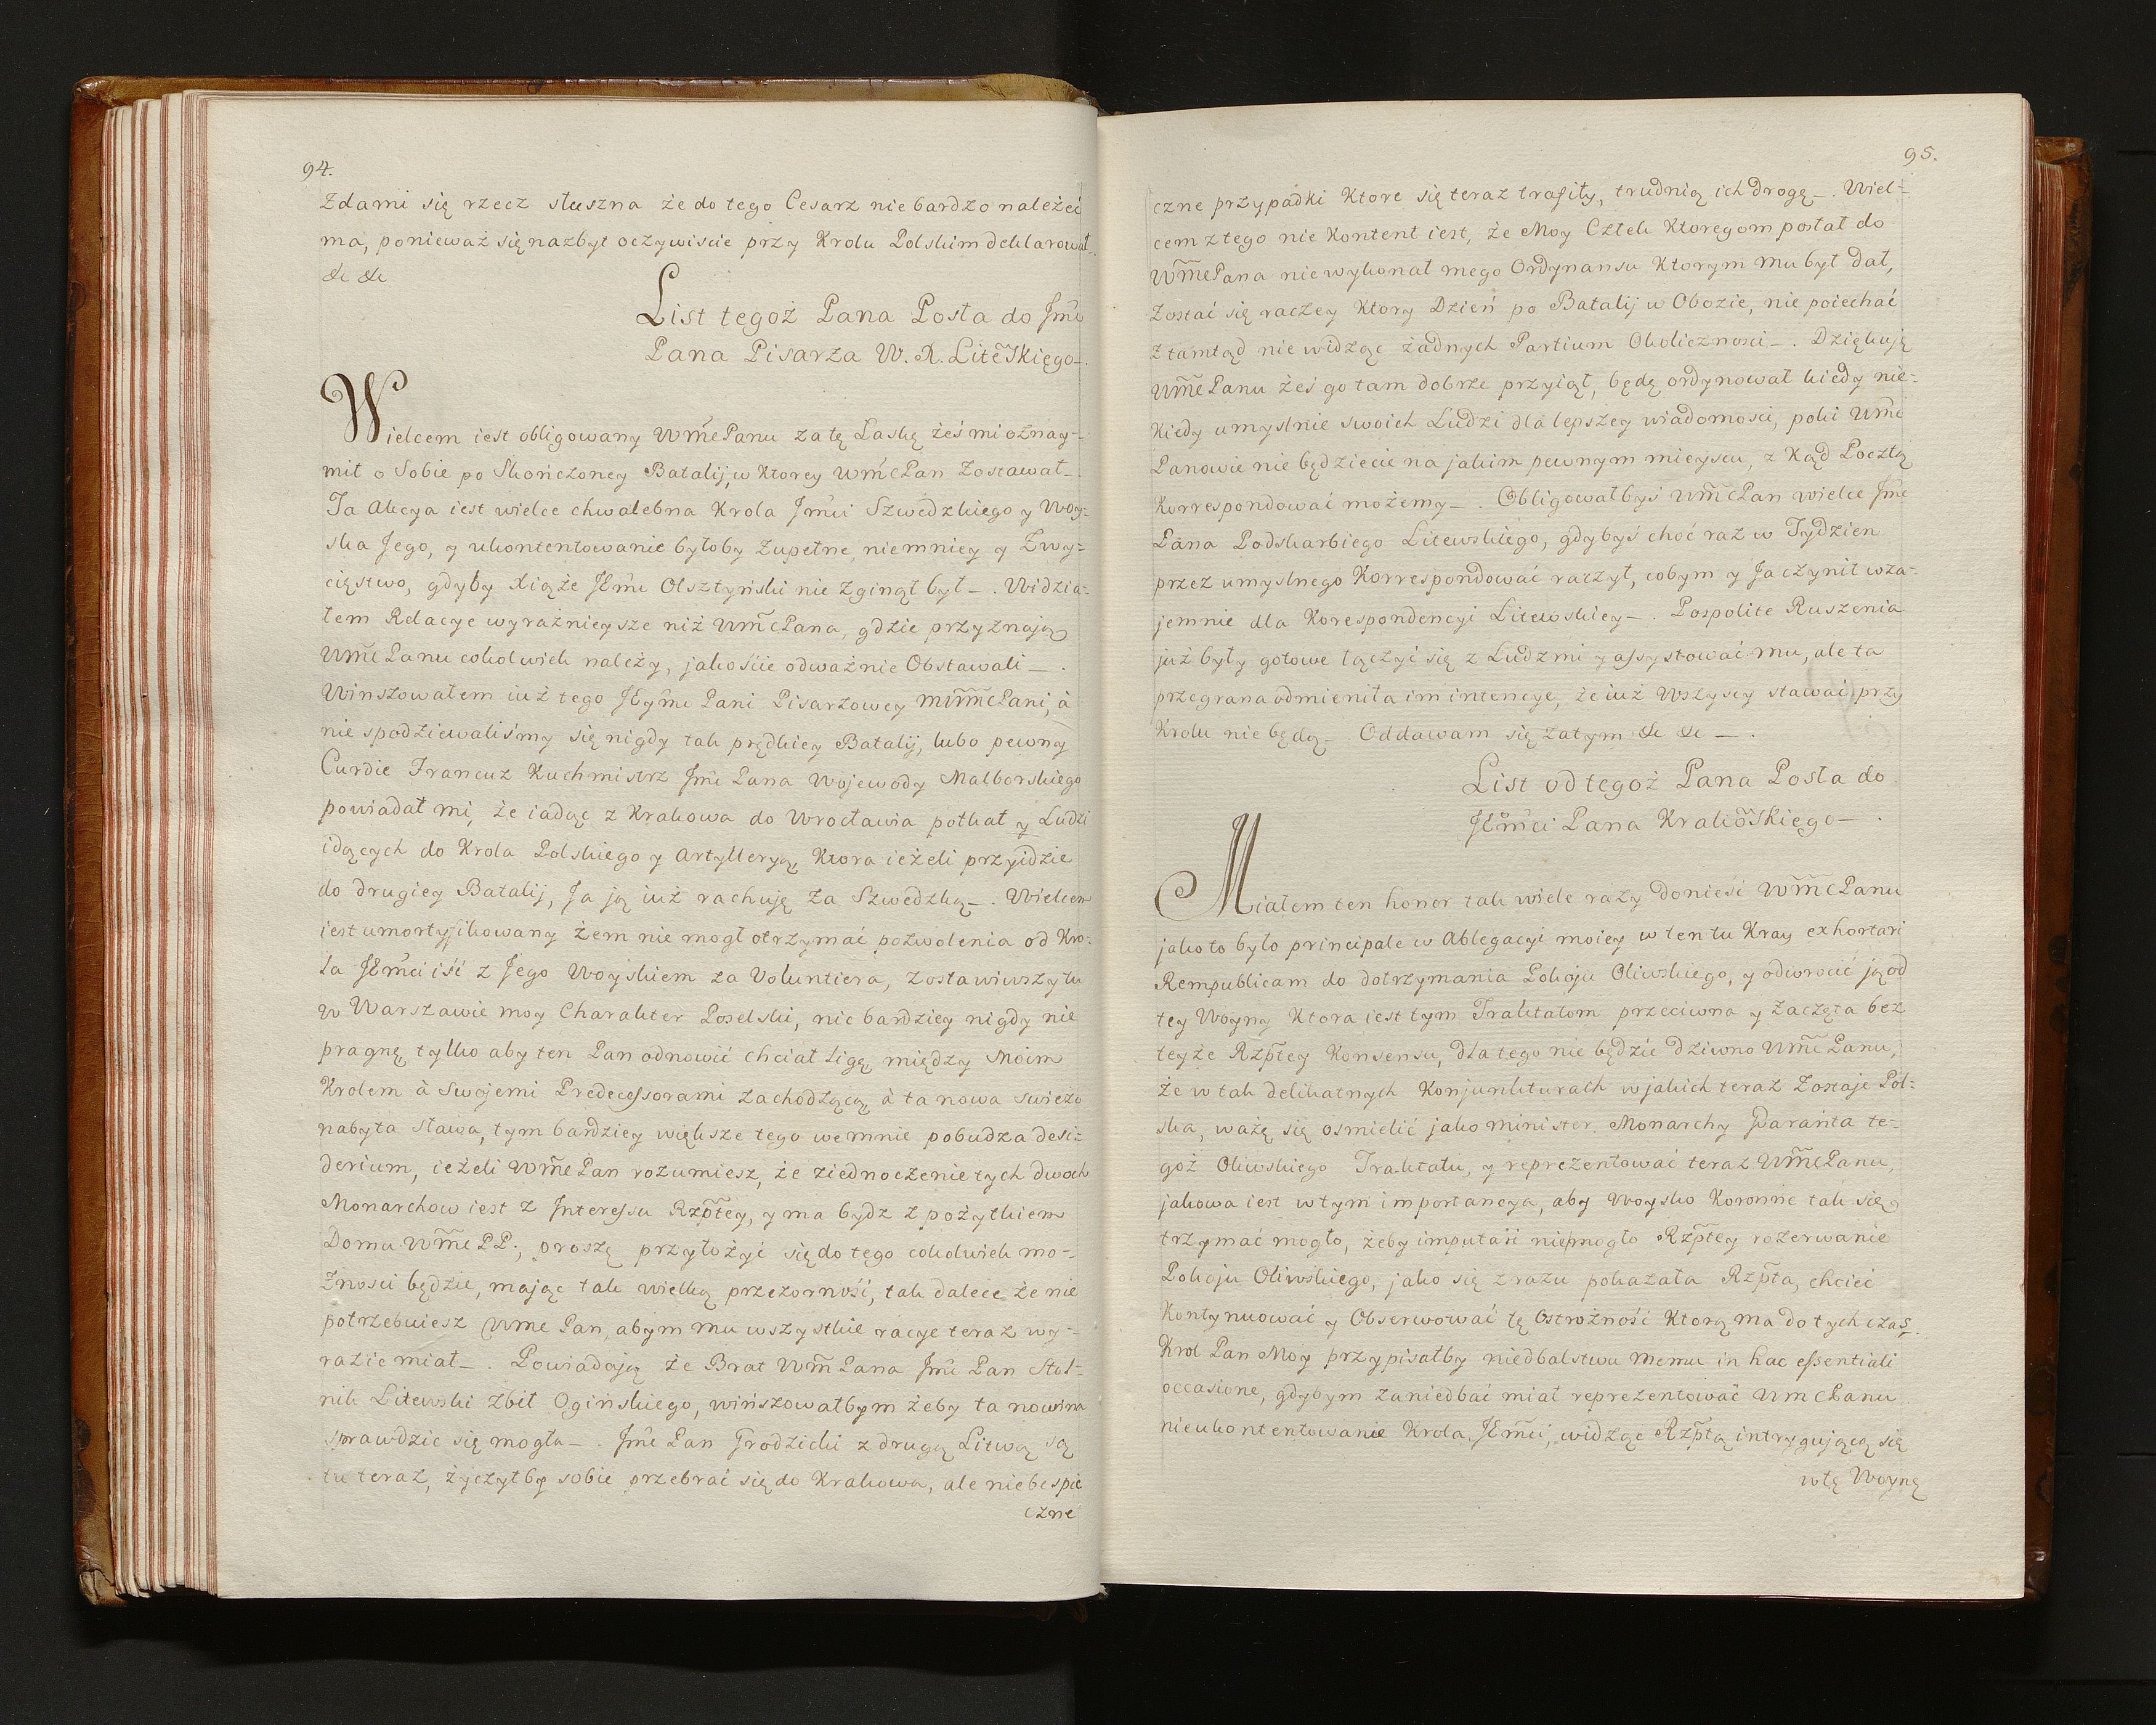 94.
Zdami się rzecz słuszna że do tego Cesarz nie bardzo należeć
ma, ponieważ się nazbyt oczywiście przy Krolu Polskim deklarował.
&c &c
List tegoż Pana Posła do Jm̃ci
Pana Pisarza W. X. Lite͠skiego.
Wielcem iest obligowany Wm̃ePanu za tę Łaskę żeś mi oznay-
mił o Sobie po Skończoney Batalij, w ktorey Wm̃cPan Zostawał_
Ta Akcya iest wielce chwalebna Krola Jm̃ci Szwedzkiego y Woy=
ska Jego, y ukontentowanie byłoby zupełne, niemniey y Zwy=
cięstwo, gdyby Xiąże JEm̃c Olsztyński nie zginął był_. Widzia=
łem Relacye wyraźnieysze niż Wm̃cPana, gdzie przyznają
Wm̃cPanu cokolwiek należy, jakoście odważnie Obstawali_.
Winszowałem iuż tego JEym̃c Pani Pisarzowey MWm̃cPani, à
nie spodziewaliśmy się nigdy tak prędkiey Batalij, lubo pewny
Curdie Francuz Kuchmistrz Jm̃c Pana Wojewody Malborskiego
powiadał mi, że iadąc z Krakowa do Wrocławia potkał y Ludzi
idących do Krola Polskiego y Artylleryą ktora ieżeli przyidzie
do drugiey Batalij, Ja ją iuż rachuję za Szwedzką_. Wielcem
iest umortyfikowany żem nie mogł otrzymać pozwolenia od Kro=
la JEm̃ci iść z Jego Woyskiem za Voluntiera, zostawiwszy tu
w Warszawie moy Charakter Poselski, nic bardziey nigdy nie
pragnę tylko aby ten Pan odnowić chciał Ligę między Moim
Krolem à Swojemi Predecessorami zachodzącą à ta nowa swieżo
nabyta sława, tym bardziey większe tego wemnie pobudza desi=
derium, ieżeli Wm̃cPan rozumiesz, że ziednoczenie tych dwoch
Monarchow iest z Interessu Rzp̃tey, y ma bydz z pożytkiem
Domu Wm̃c PP., proszę przyłożyć się do tego cokolwiek mo-
żności będzie, mając tak wielką przezorność, tak dalece że nie
potrzebuiesz Wmc Pan, abym mu wszystkie racye teraz wy-
razić miał_. Powiadają że Brat Wm̃Pana Jm̃c Pan Stol-
nik Litewski zbił Ogińskiego, winszowałbym żeby ta nowina
sprawdzić się mogła_. Jm̃c Pan Grodzicki z drugą Litwą są
tu teraz, życzyłby sobie przebrać się do Krakowa, ale niebespie
czne
95.
czne przypadki ktore się teraz trafiły, trudnią ich drogę_. Wiel=
cem z tego nie kontent iest, że Moy Człek ktoregom posłał do
Wm̃cPana nie wykonał mego Ordynansu ktorym mu był dał,
zostać się raczey ktory Dzień po Batalij w Obozie, nie poiechać
z tamtąd nie widząc żadnych Partium Okoliczności_. Dziękuję
Wm̃cPanu żeś go tam dobrze przyiął, będę ordynował kiedy nie=
kiedy umyslnie swoich Ludzi dla lepszey wiadomości, poki Wm̃c
Panowie nie będziecie na jakim pewnym mieyscu, z kąd Pocztą
korrespondować możemy_. Obligowałbyś Wm̃cPan wielce Jm̃c
Pana Podskarbiego Litewskiego, gdybyś choć raz w Tydzien
przez umyslnego korrespondować raczył, cobym y Ja czynił wza-
jemnie dla Korespondencyi Litewskiey_. Pospolite Ruszenia
już były gotowe łączyć się z Ludzmi y assystować mu, ale ta
przegrana odmieniła im intencye, że iuż wszyscy stawać przy
Krolu nie będą_ Oddawam się zatym &c &c_.
List od tegoż Pana Posła do
JEm̃ci Pana Krako͠skiego_.
Miałem ten honor tak wiele razy donieść Wm̃cPanu
jako to było principale w Ablegacyi moiey w ten tu Kray exhortari
Rempublicam do dotrzymania Pokoju Oliwskiego, y odwrocić ją od
tey Woyny ktora iest tym Traktatom przeciwna y zaczęta bez
teyże Rzp̃tey Konsensu, dla tego nie będzie dziwno Wm̃cPanu,
że w tak delikatnych Konjunkturach w jakich teraz Zostaje Pol=
ska, ważę się osmielić jako minister Monarchy Gwaranta te-
goż Oliwskiego Traktatu, y reprezentować teraz Wm̃cPanu,
jakowa iest w tym importancya, aby Woysko Koronne tak się
trzymać mogło, żeby imputari niemogło Rzp̃tey rozerwanie
Pokoju Oliwskiego, jako się z razu pokazała Rzp̃ta, chcieć
kontynuować y Obserwować tę ostrożność ktorą ma do tych czas.
Krol Pan Moy przypisałby niedbalstwu memu in hac essentiali
occasione, gdybym zaniedbać miał reprezentować Wm cPanu
nieukontentowanie Krola JEm̃ci, widząc Rzp̃tą intrygującą się
w tę Woynę